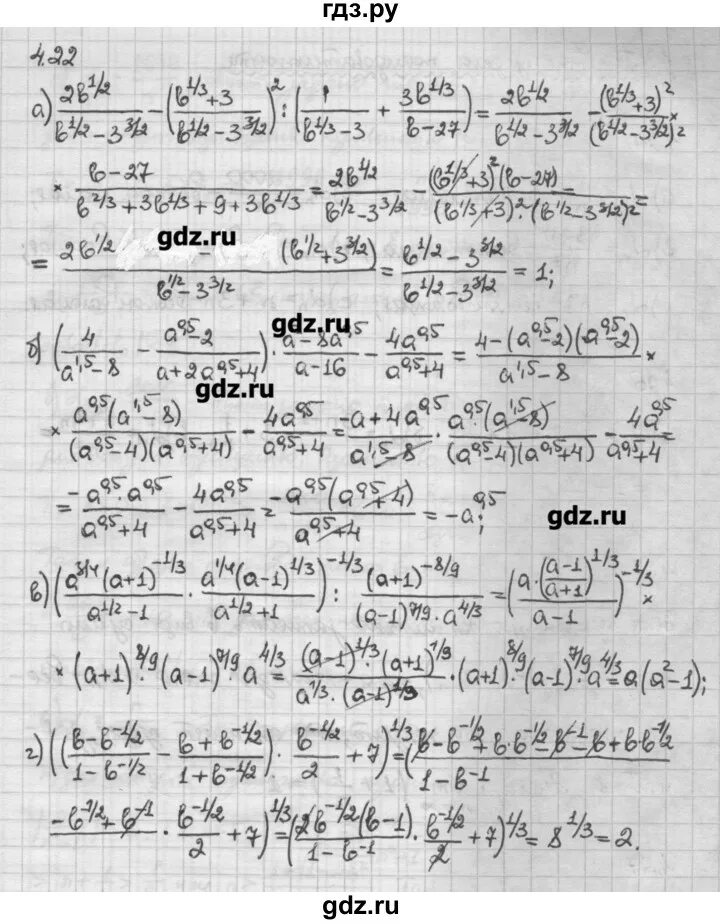 гдз.ру
4.22
а) 2b^{1/2}/(b^{1/2}-3^{3/2}) - ((b^{1/3}+3)/(b^{1/2}-3^{3/2}))^2 : (1/(b^{1/3}-3) + 3b^{1/3}/(b-27)) = 2b^{1/2}/(b^{1/2}-3^{3/2}) - (b^{1/3}+3)^2/(b^{1/2}-3^{3/2})^2 ×
× (b-27)/(b^{2/3}+3b^{1/3}+9+3b^{1/3}) = 2b^{1/2}/(b^{1/2}-3^{3/2}) - (b^{1/3}+3)^2(b-27)/((b^{1/3}+3)^2·(b^{1/2}-3^{3/2})^2) =
gdz.ru
= (2b^{1/2} - (b^{1/2}+3^{3/2}))/(b^{1/2}-3^{3/2}) = (b^{1/2}-3^{3/2})/(b^{1/2}-3^{3/2}) = 1;
gdz.ru
б) (4/(a^{1,5}-8) - (a^{0,5}-2)/(a+2a^{0,5}+4)) · (a-8a^{0,5})/(a-16) - 4a^{0,5}/(a^{0,5}+4) = (4-(a^{0,5}-2)(a^{0,5}-2))/(a^{1,5}-8) ×
gdz.ru
× a^{0,5}(a^{1,5}-8)/((a^{0,5}-4)(a^{0,5}+4)) - 4a^{0,5}/(a^{0,5}+4) = (-a+4a^{0,5})/(a^{1,5}-8) · a^{0,5}(a^{1,5}-8)/((a^{0,5}-4)(a^{0,5}+4)) - 4a^{0,5}/(a^{0,5}+4) =
= -a^{0,5}·a^{0,5}/(a^{0,5}+4) - 4a^{0,5}/(a^{0,5}+4) = -a^{0,5}(a^{0,5}+4)/(a^{0,5}+4) = -a^{0,5};
gdz.ru
в) (a^{3/4}(a+1)^{-1/3}/(a^{1/2}-1) · a^{1/4}(a-1)^{1/3}/(a^{1/2}+1))^{-1/3} : (a+1)^{-8/9}/((a-1)^{7/9}·a^{4/3}) = (a·((a-1)/(a+1))^{1/3}/(a-1))^{-1/3} ×
× (a+1)^{8/9}·(a-1)^{7/9}·a^{4/3} = (a-1)^{1/3}·(a+1)^{1/9}/(a^{1/3}·(a-1)^{1/9})·(a+1)^{8/9}·(a-1)^{7/9}·a^{4/3} = a(a^2-1);
г) (((b-b^{-1/2})/(1-b^{-1/2}) - (b+b^{-1/2})/(1+b^{-1/2})) · b^{-1/2}/2 + 7)^{1/3} = ((b-b^{-1/2}+b·b^{-1/2}-b^{-1}-b+b·b^{-1/2}
-b^{-1/2}+b^{-1})/(1-b^{-1}) · b^{-1/2}/2 + 7)^{1/3} = (2b^{-1/2}(b-1)/(1-b^{-1}) · b^{-1/2}/2 + 7)^{1/3} = 8^{1/3} = 2.
gdz.ru